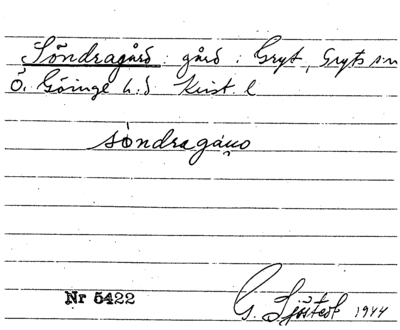 Söndragård : gård i Gryt, Gryts sn
Ö. Göinge h:d Krist. l
söndragå̀ṷo
Nr 5422
G. Sjöstedt 1944